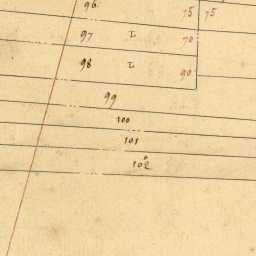 96 75 75
97 τ 70
98 τ 90
99
100
101
102